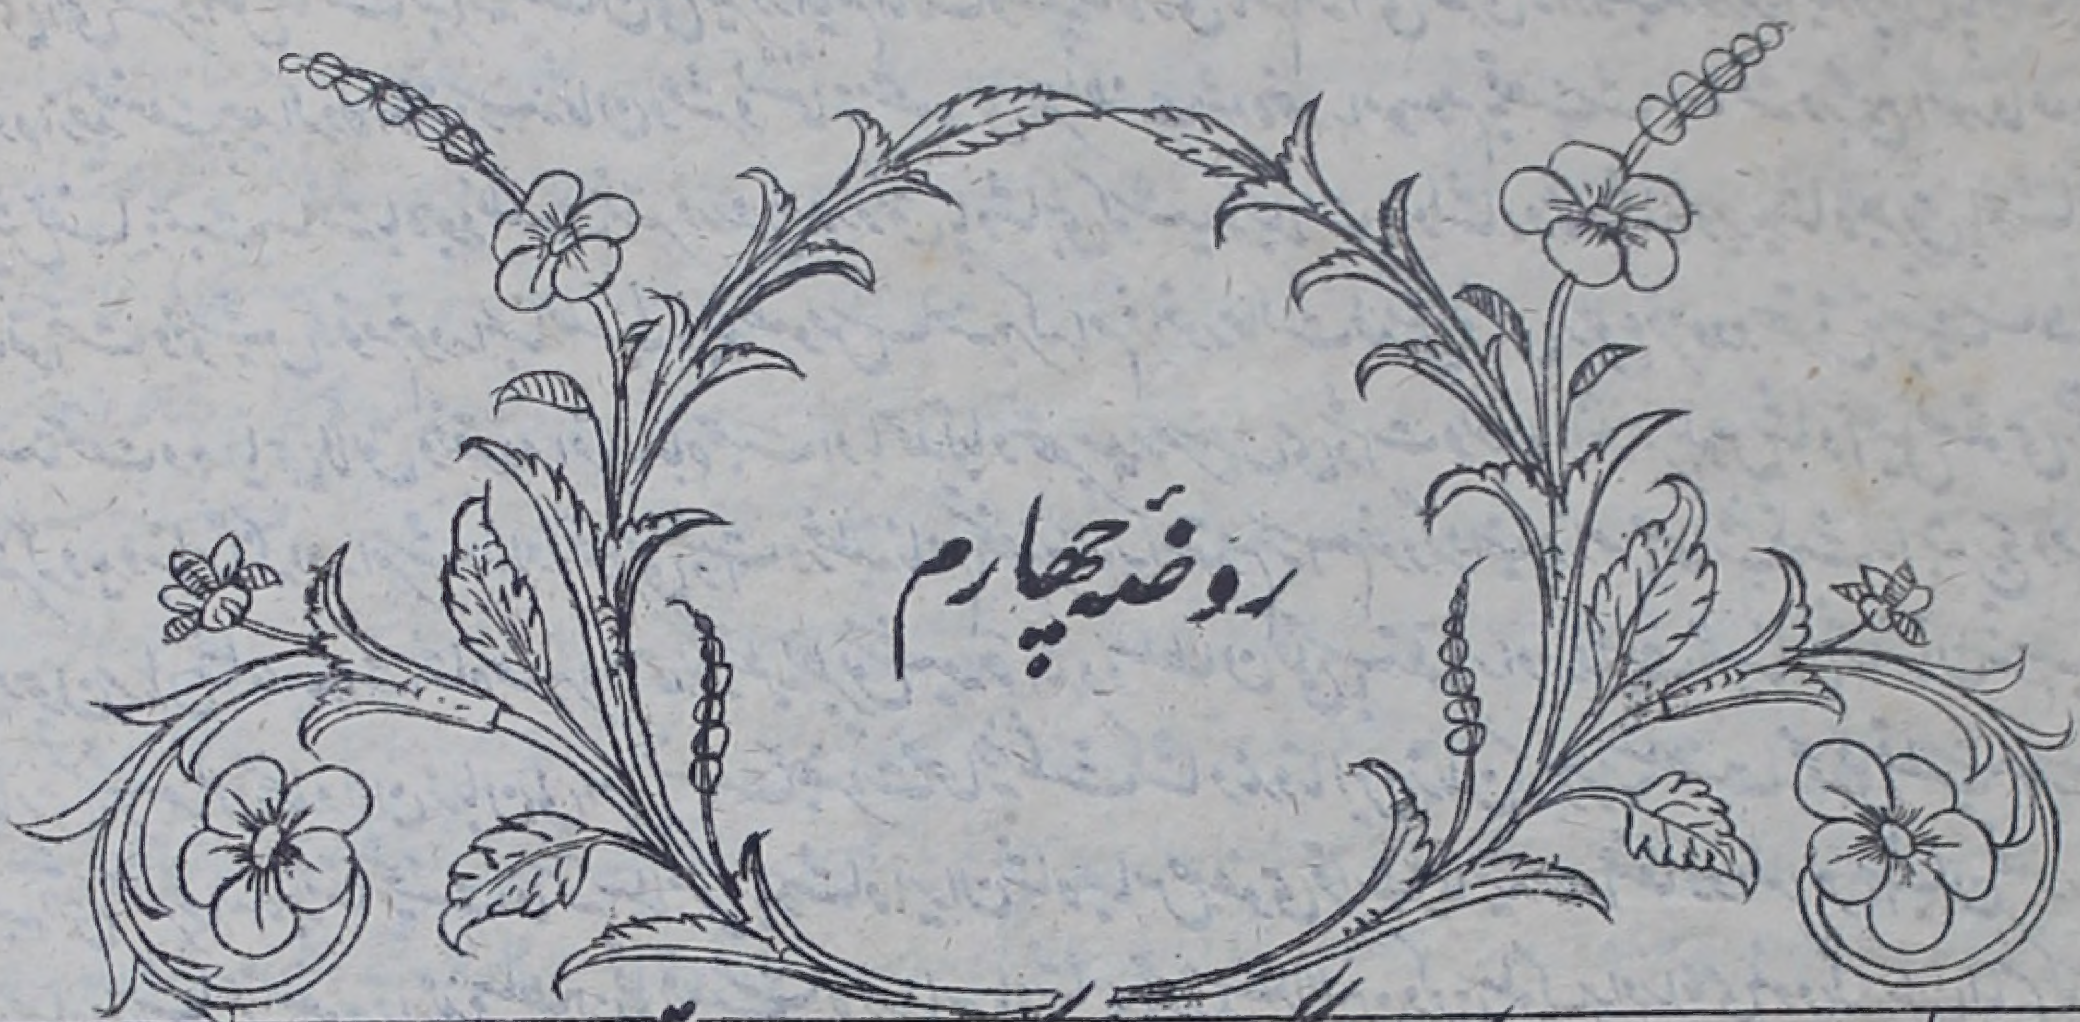 روضۂ چهارم